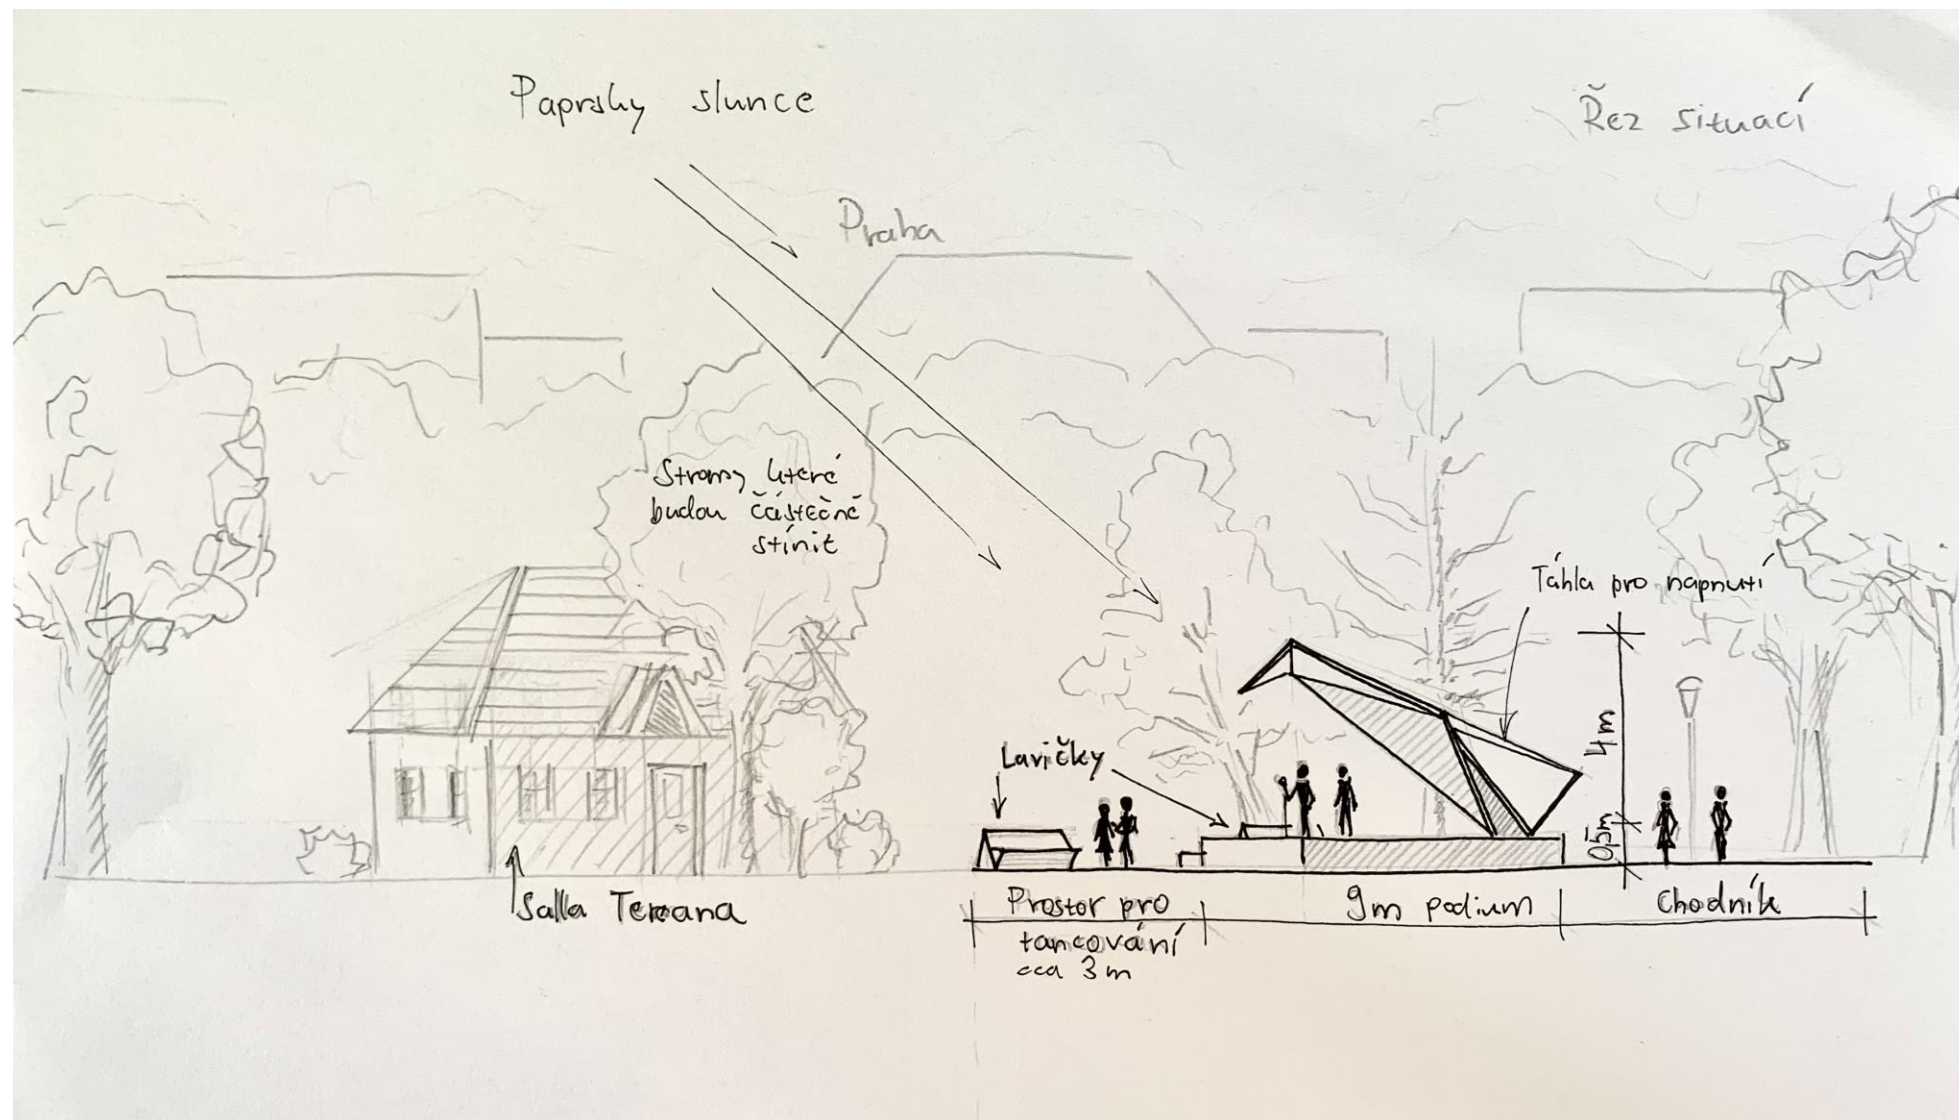 Paprsky slunce
Řez situací
Praha
Stromy které
budou částečně
stínit
Táhla pro napnutí
4m
Lavičky
0,5m
Salla Tereana
Prostor pro
tancování
cca 3m
9m podium
Chodník